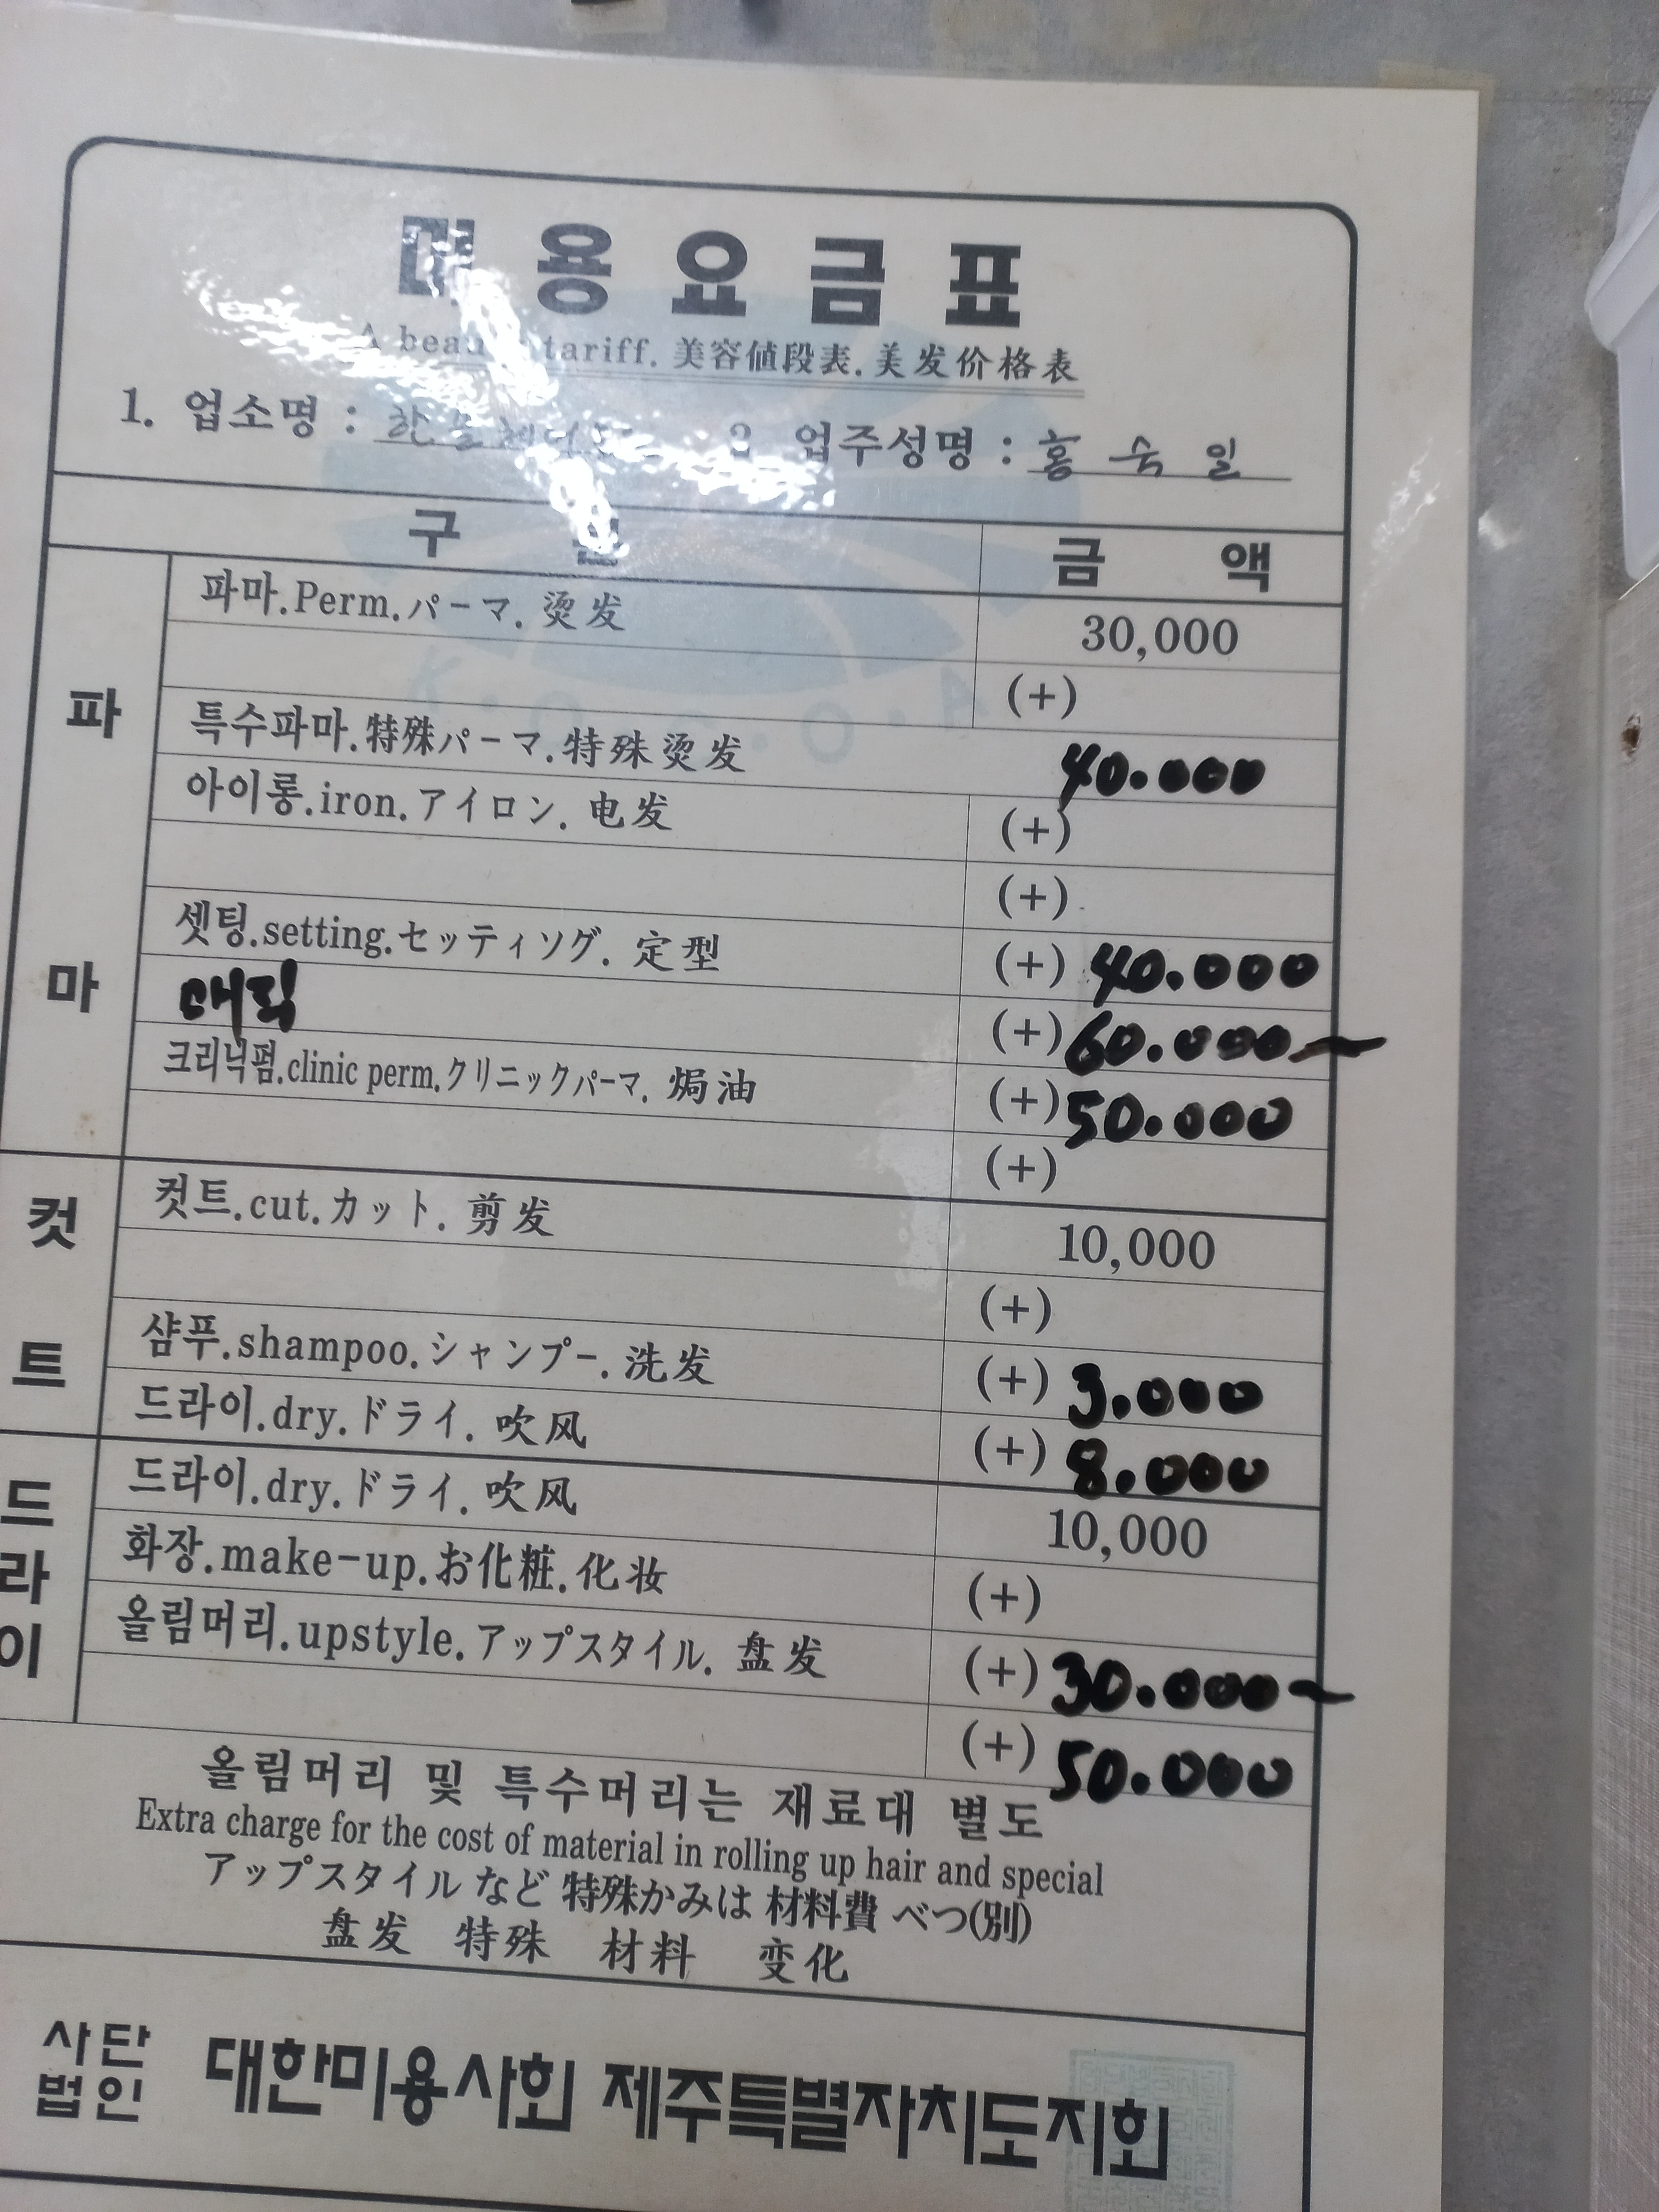 미용요금표
A beauty tariff. 美容値段表. 美发价格表
1. 업소명 : 2 업주성명 : 홍 숙 일
구 분 금 액
파마
파마.Perm.パーマ. 烫发 30,000
(+)
특수파마.特殊パーマ.特殊烫发 40.000
아이롱.iron.アイロン. 电发 (+)
(+)
셋팅.setting.セッティソグ. 定型 (+) 40.000
매직 (+) 60.000~
크리닉펌.clinic perm.クリニックパーマ. 焗油 (+) 50.000
(+)
컷트
컷트.cut.カット. 剪发 10,000
(+)
샴푸.shampoo.シャンプー. 洗发 (+) 3.000
드라이.dry.ドライ. 吹风 (+) 8.000
드라이
드라이.dry.ドライ. 吹风 10,000
화장.make-up.お化粧.化妆 (+)
올림머리.upstyle.アップスタイル. 盘发 (+) 30.000~
(+) 50.000
올림머리 및 특수머리는 재료대 별도
Extra charge for the cost of material in rolling up hair and special
アップスタイル など 特殊かみは 材料費 べつ(別)
盘发 特殊 材料 变化
사단법인 대한미용사회 제주특별자치도지회